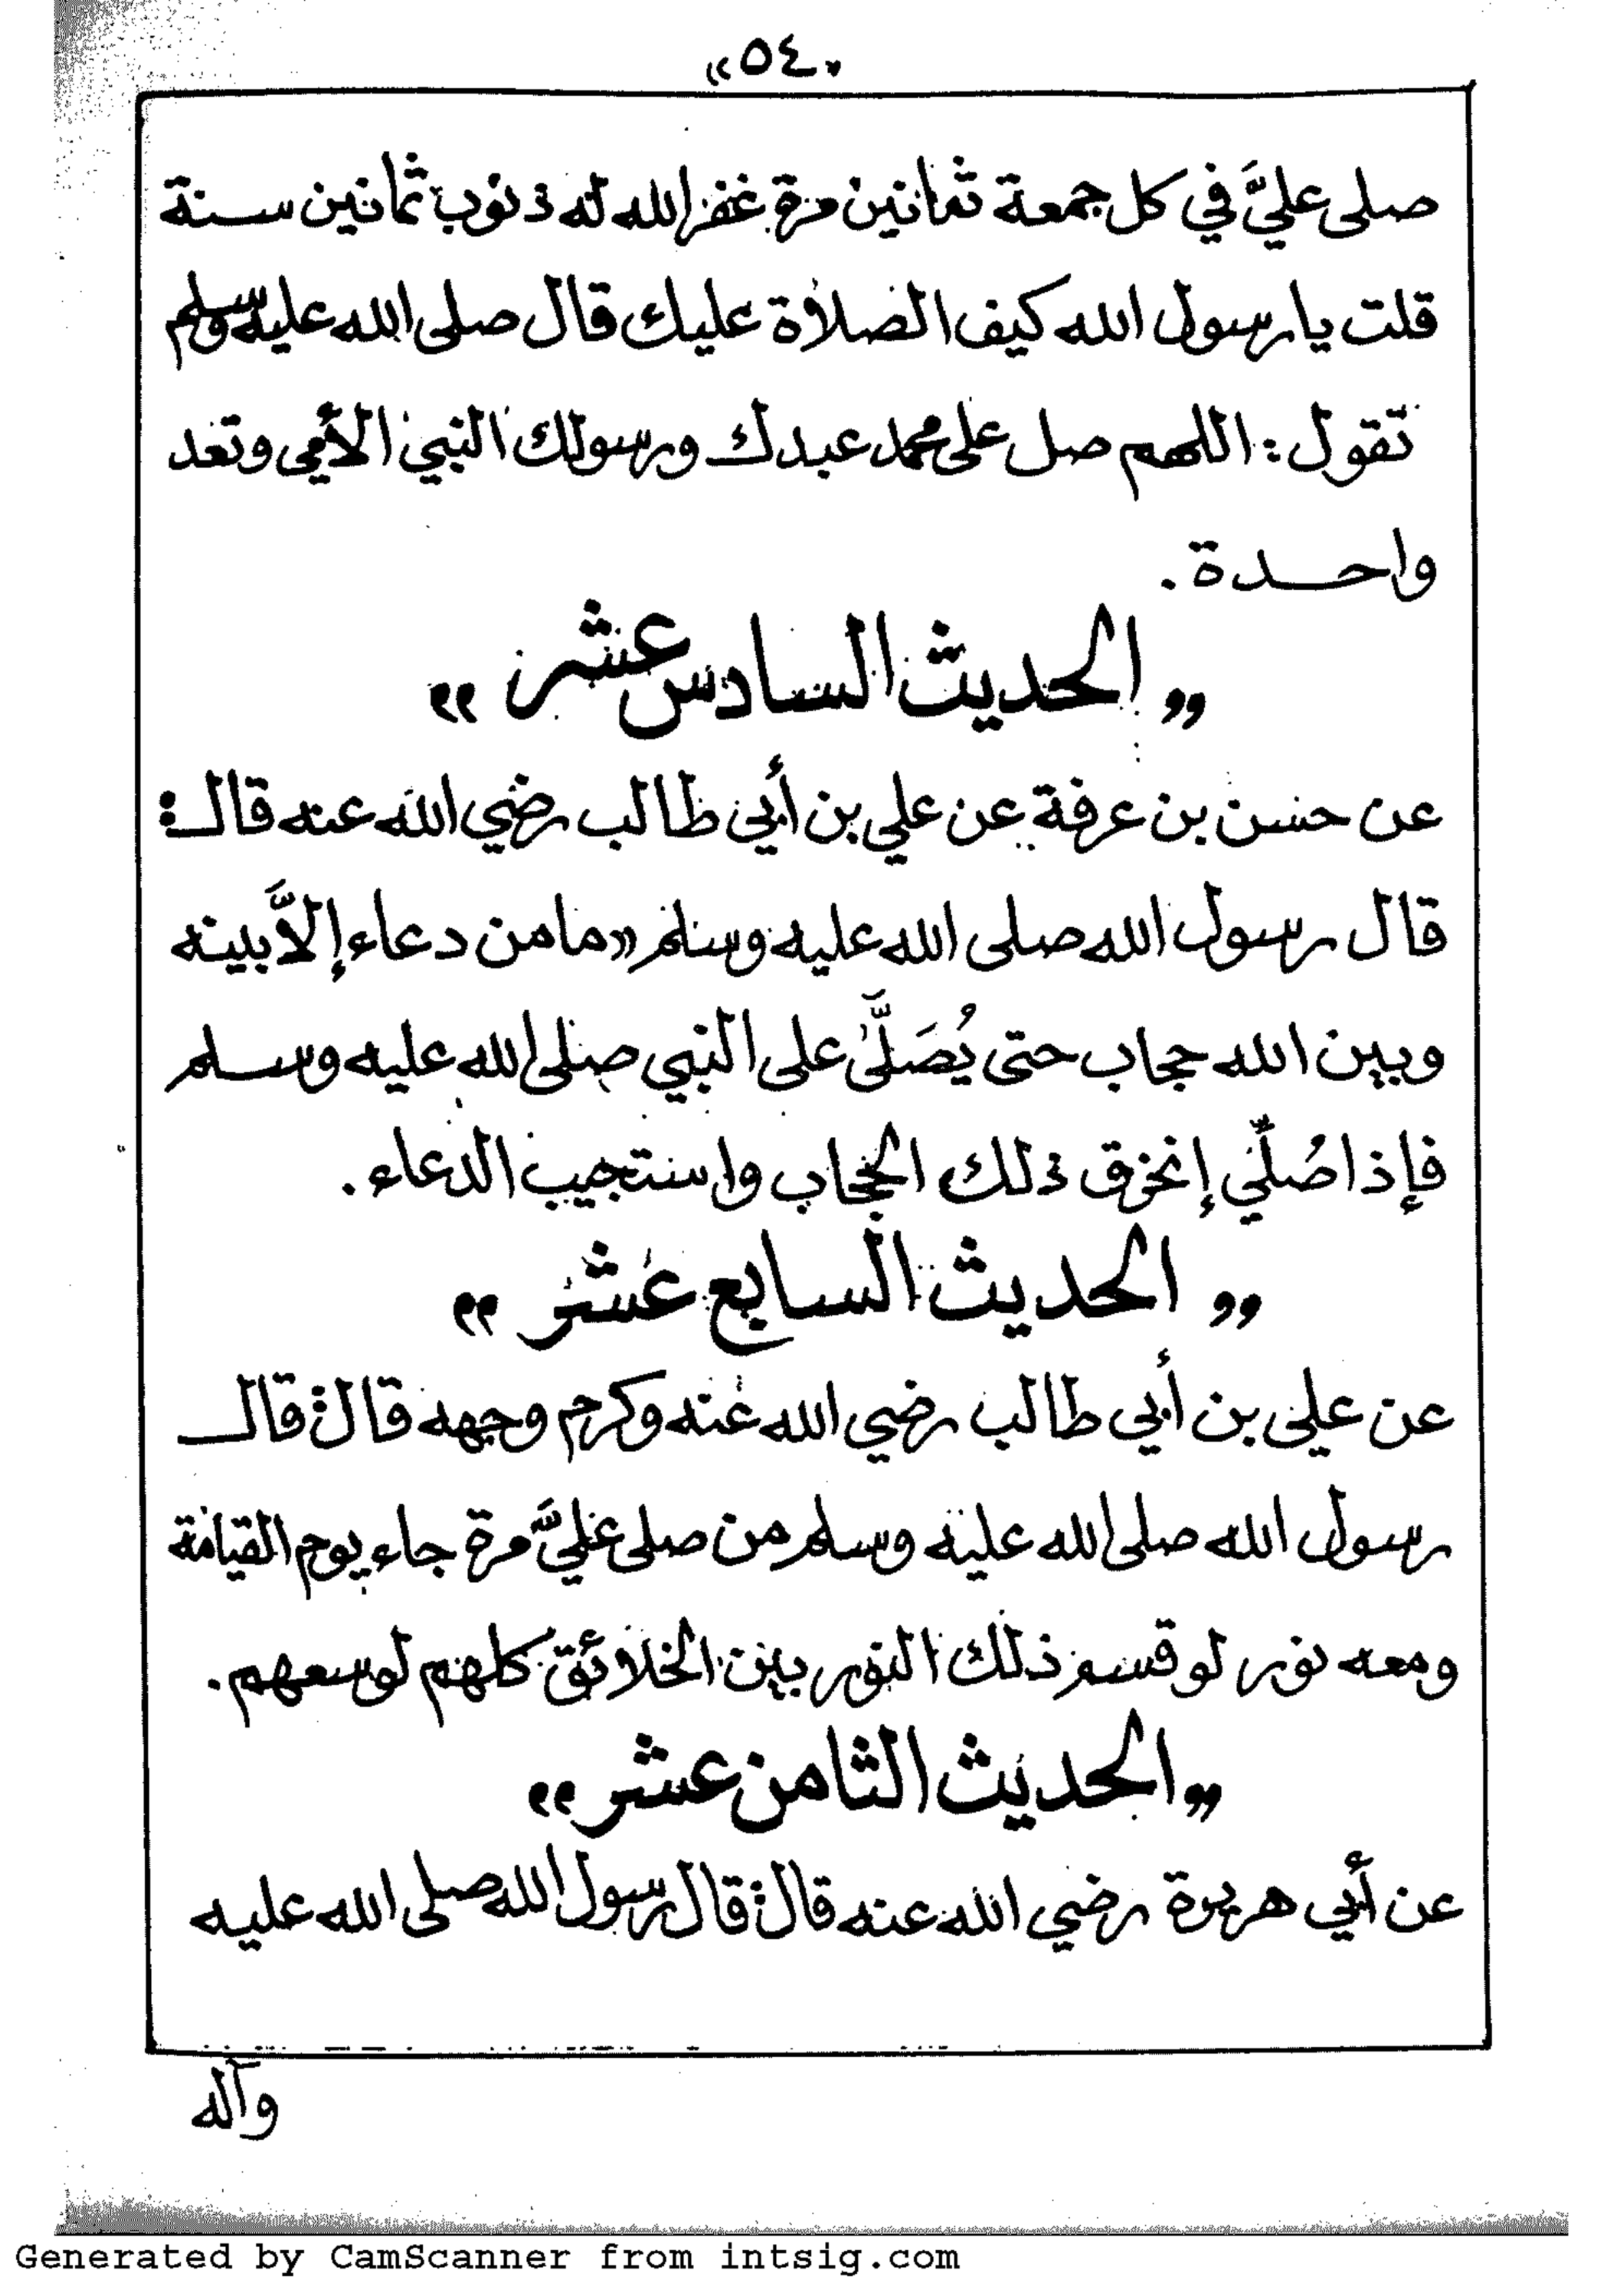 «٥٤»
صلى عليَّ في كل جمعة ثمانين مرة غفر الله له ذنوب ثمانين سنة
قلت يا رسول الله كيف الصلاة عليك قال صلى الله عليه وسلم
تقول: اللهم صل على محمد عبدك ورسولك النبي الأمي وتعد
واحدة.
„ الحديث السادس عشر „
عن حسن بن عرفة عن علي بن أبي طالب رضي الله عنه قال:
قال رسول الله صلى الله عليه وسلم «ما من دعاء إلاَّ بينه
وبين الله حجاب حتى يُصَلَّىٰ على النبي صلى الله عليه وسلم
فإذا صُلِّي إنخرق ذلك الحجاب واستجيب الدعاء.
„ الحديث السابع عشر „
عن علي بن أبي طالب رضي الله عنه وكرم وجهه قال: قال
رسول الله صلى الله عليه وسلم من صلى عليَّ مرة جاء يوم القيامة
ومعه نور لو قسم ذلك النور بين الخلائق كلهم لوسعهم.
„ الحديث الثامن عشر „
عن أبي هريرة رضي الله عنه قال: قال رسول الله صلى الله عليه
وآله
Generated by CamScanner from intsig.com